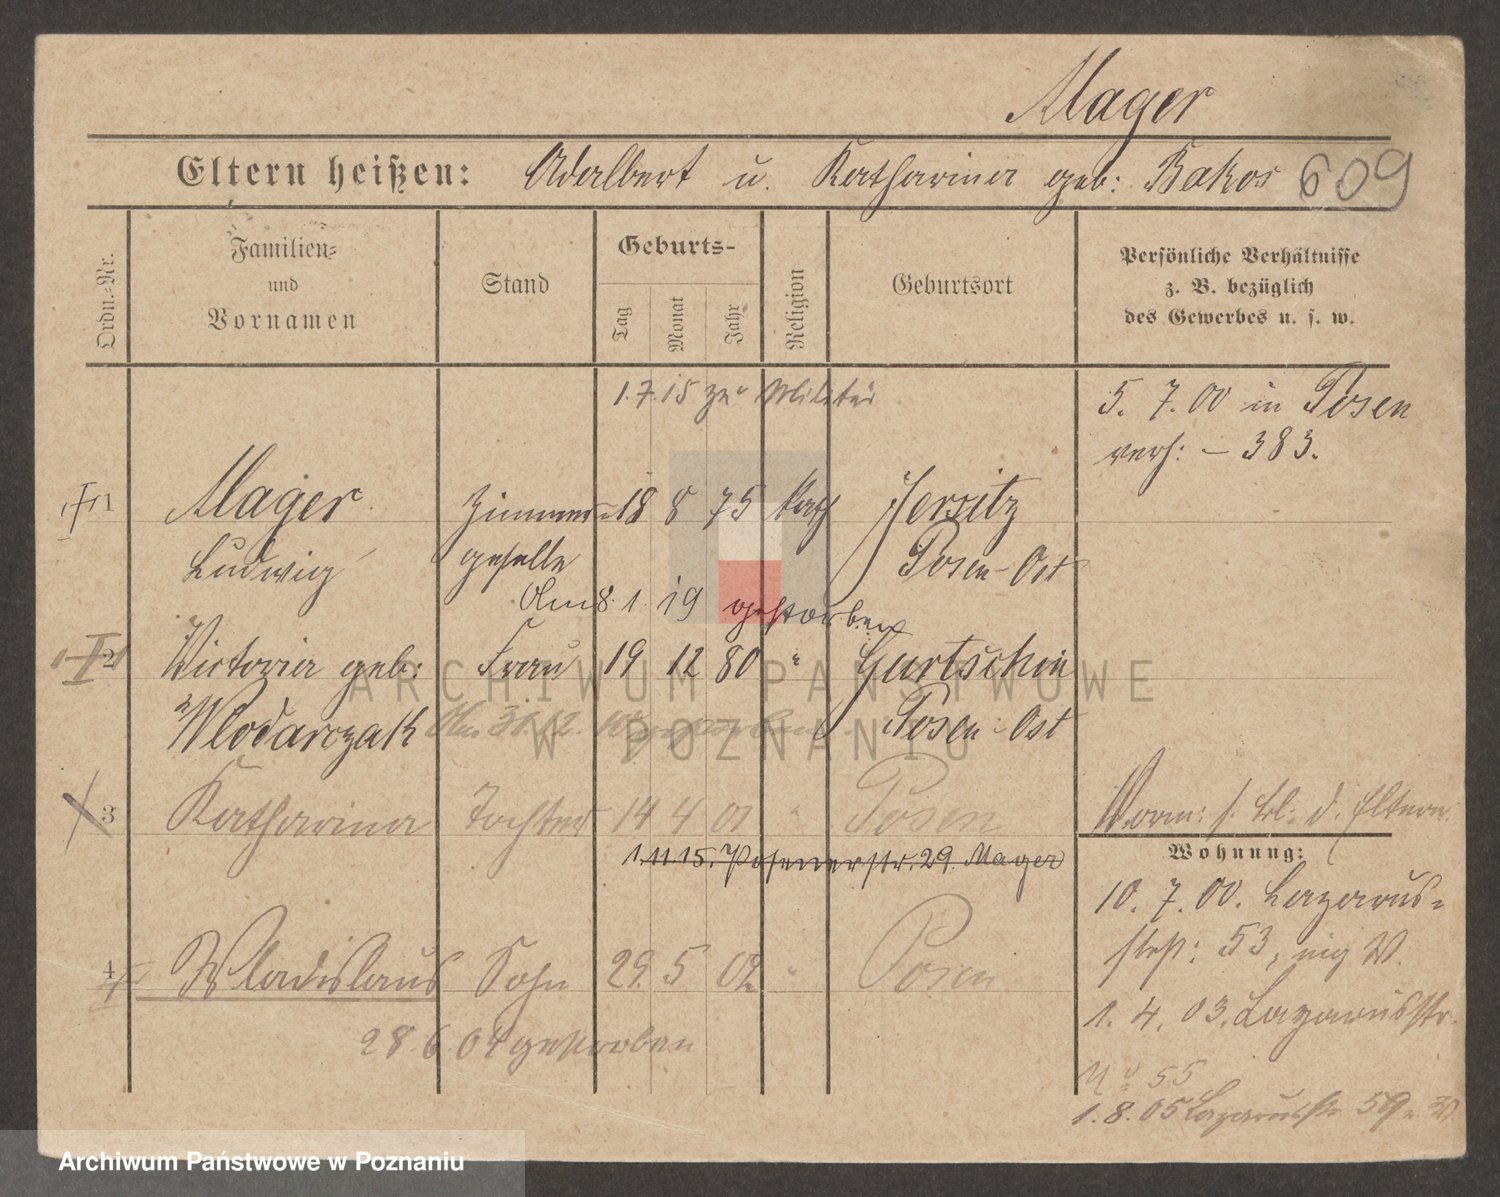 Mager
Eltern heißen: Adalbert u. Katharina geb: Bakos 609
Ordn.-Nr.
Familien-
und
Vornamen
Stand
Geburts-
Tag
Monat
Jahr
Religion
Geburtsort
Persönliche Verhältnisse
z. B. bezüglich
des Gewerbes u. s. w.
1.7.15 zu Militär
5. 7. 00 in Posen
verh: – 383.
1 Mager Zimmer- 18 8 75 kath Jersitz
Ludwig geselle Posen-Ost
Am 8. 1. 19 gestorben
2 Victoria geb: Frau 19 12 80 " Gurtschin
Wlodarczak Posen-Ost
3 Katharina Tochter 14 4 01 " Posen
Vorm: s. bl. d. Eltern
1.11.15. Posenerstr. 29. Mager
Wohnung:
10. 7. 00. Lazarus-
4 Wladislaus Sohn 29. 5 02 " Posen
53,
1. 4. 03. Lazarusstr.
28.6.04 gestorben
No 55
1.8.05 Lazarusstr 59
ARCHIWUM PAŃSTWOWE
W POZNANIU
Archiwum Państwowe w Poznaniu